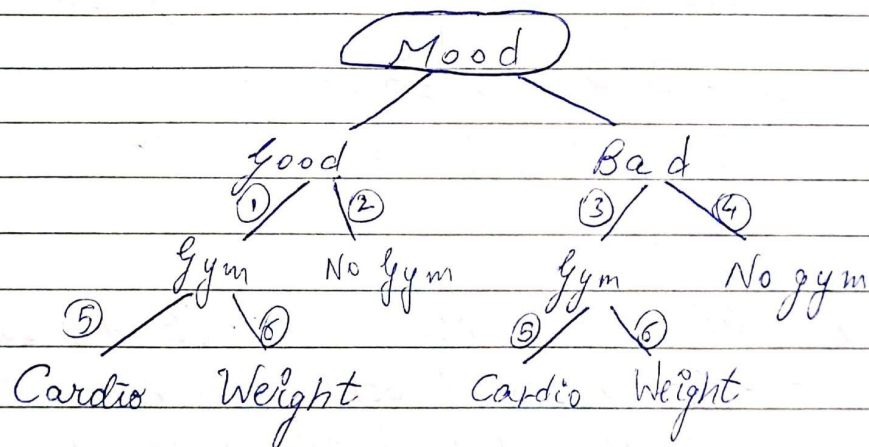 Mood
Good Bad
① ② ③ ④
Gym No Gym Gym No gym
⑤ ⑥ ⑤ ⑥
Cardio Weight Cardio Weight